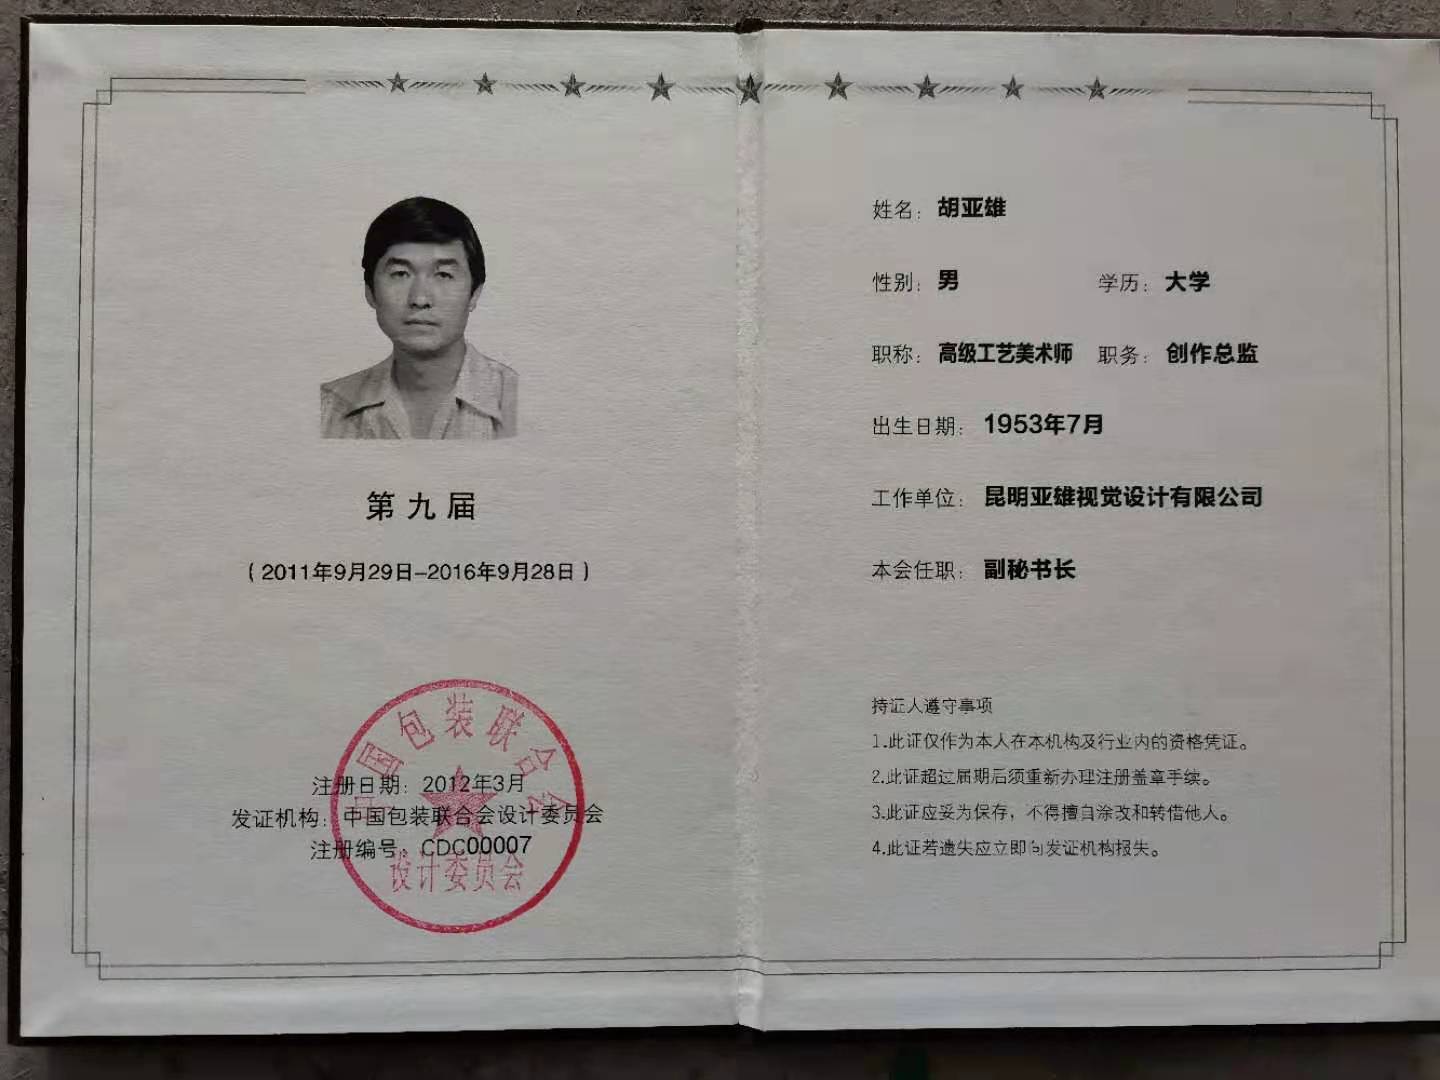 第九届
（2011年9月29日-2016年9月28日）
注册日期：2012年3月
发证机构：中国包装联合会设计委员会
注册编号：CDC00007
中国包装联合会
设计委员会
姓名：胡亚雄
性别：男 学历：大学
职称：高级工艺美术师 职务：创作总监
出生日期：1953年7月
工作单位：昆明亚雄视觉设计有限公司
本会任职：副秘书长
持证人遵守事项
1.此证仅作为本人在本机构及行业内的资格凭证。
2.此证超过届期后须重新办理注册盖章手续。
3.此证应妥为保存，不得擅自涂改和转借他人。
4.此证若遗失应立即向发证机构报失。